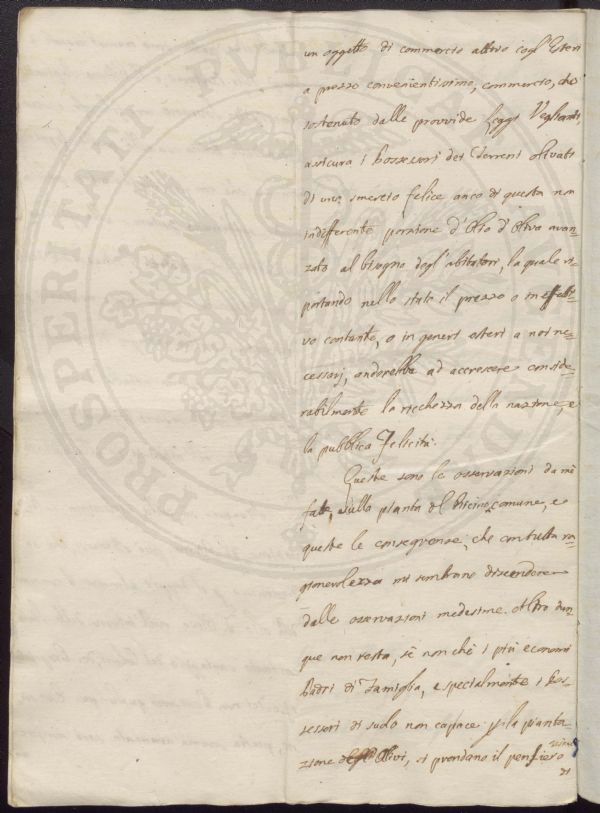 un oggetto di commercio attivo cogl'Esteri
a prezzo convenientissimo, commercio, che
sostenuto dalle provvide Leggi Veglianti,
assicura i Possessori dei Terreni olivati
di uno smercio felice anco di questa non
indifferente porzione d'Olio d'Oliva avan=
zato al bisogno degl'abitatori, la quale ri=
portando nello stato il prezzo o in effetti=
vo contante, o in generi esteri a noi ne=
cessarj, anderebbe ad accrescere conside=
rabilmente la ricchezza della nazione, e
la pubblica Felicità.
Queste sono le osservazioni da mè
fatte, sulla pianta del Ricino comune, e
queste le conseguenze, che con tutta ra=
gionevolezza mi sembrano discendere
dalle osservazioni medesime. Altro dun=
que non resta, sè non chè i più economi
Padri di Famiglia, e specialmente i Pos=
sessori di suolo non capace p. la pianta=
zione degl'Olivi, si prendano il pensiero
di
PROSPERITATI PUBLICAE